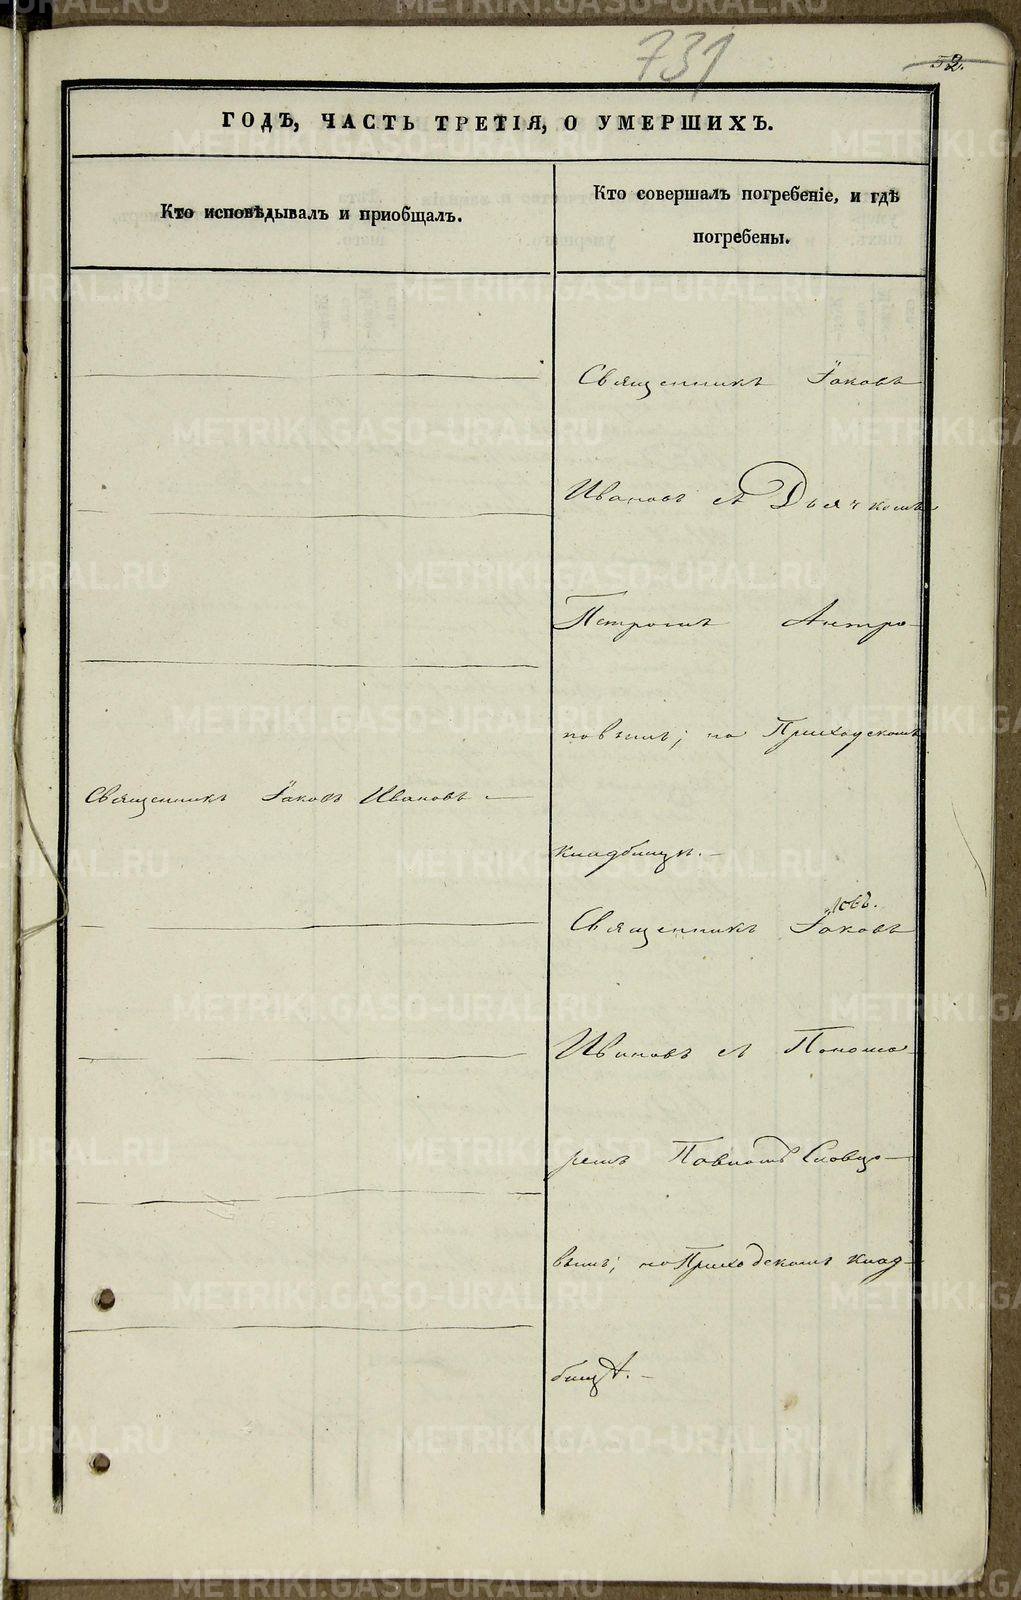 731
52.
ГОДЪ, ЧАСТЬ ТРЕТІЯ, О УМЕРШИХЪ.
Кто исповѣдывалъ и приобщалъ.
Кто совершалъ погребеніе, и гдѣ
погребены.
Священникъ Іаковъ
Ивановъ съ Дьячкомъ
Петромъ Антро-
повымъ; на Приходскомъ
Священникъ Іаковъ Ивановъ
кладбищѣ.
Священникъ Іаковъ
Ивановъ съ Понома-
ремъ Павломъ Словцо-
вымъ; на Приходскомъ клад-
бищѣ.
METRIKI.GASO-URAL.RU